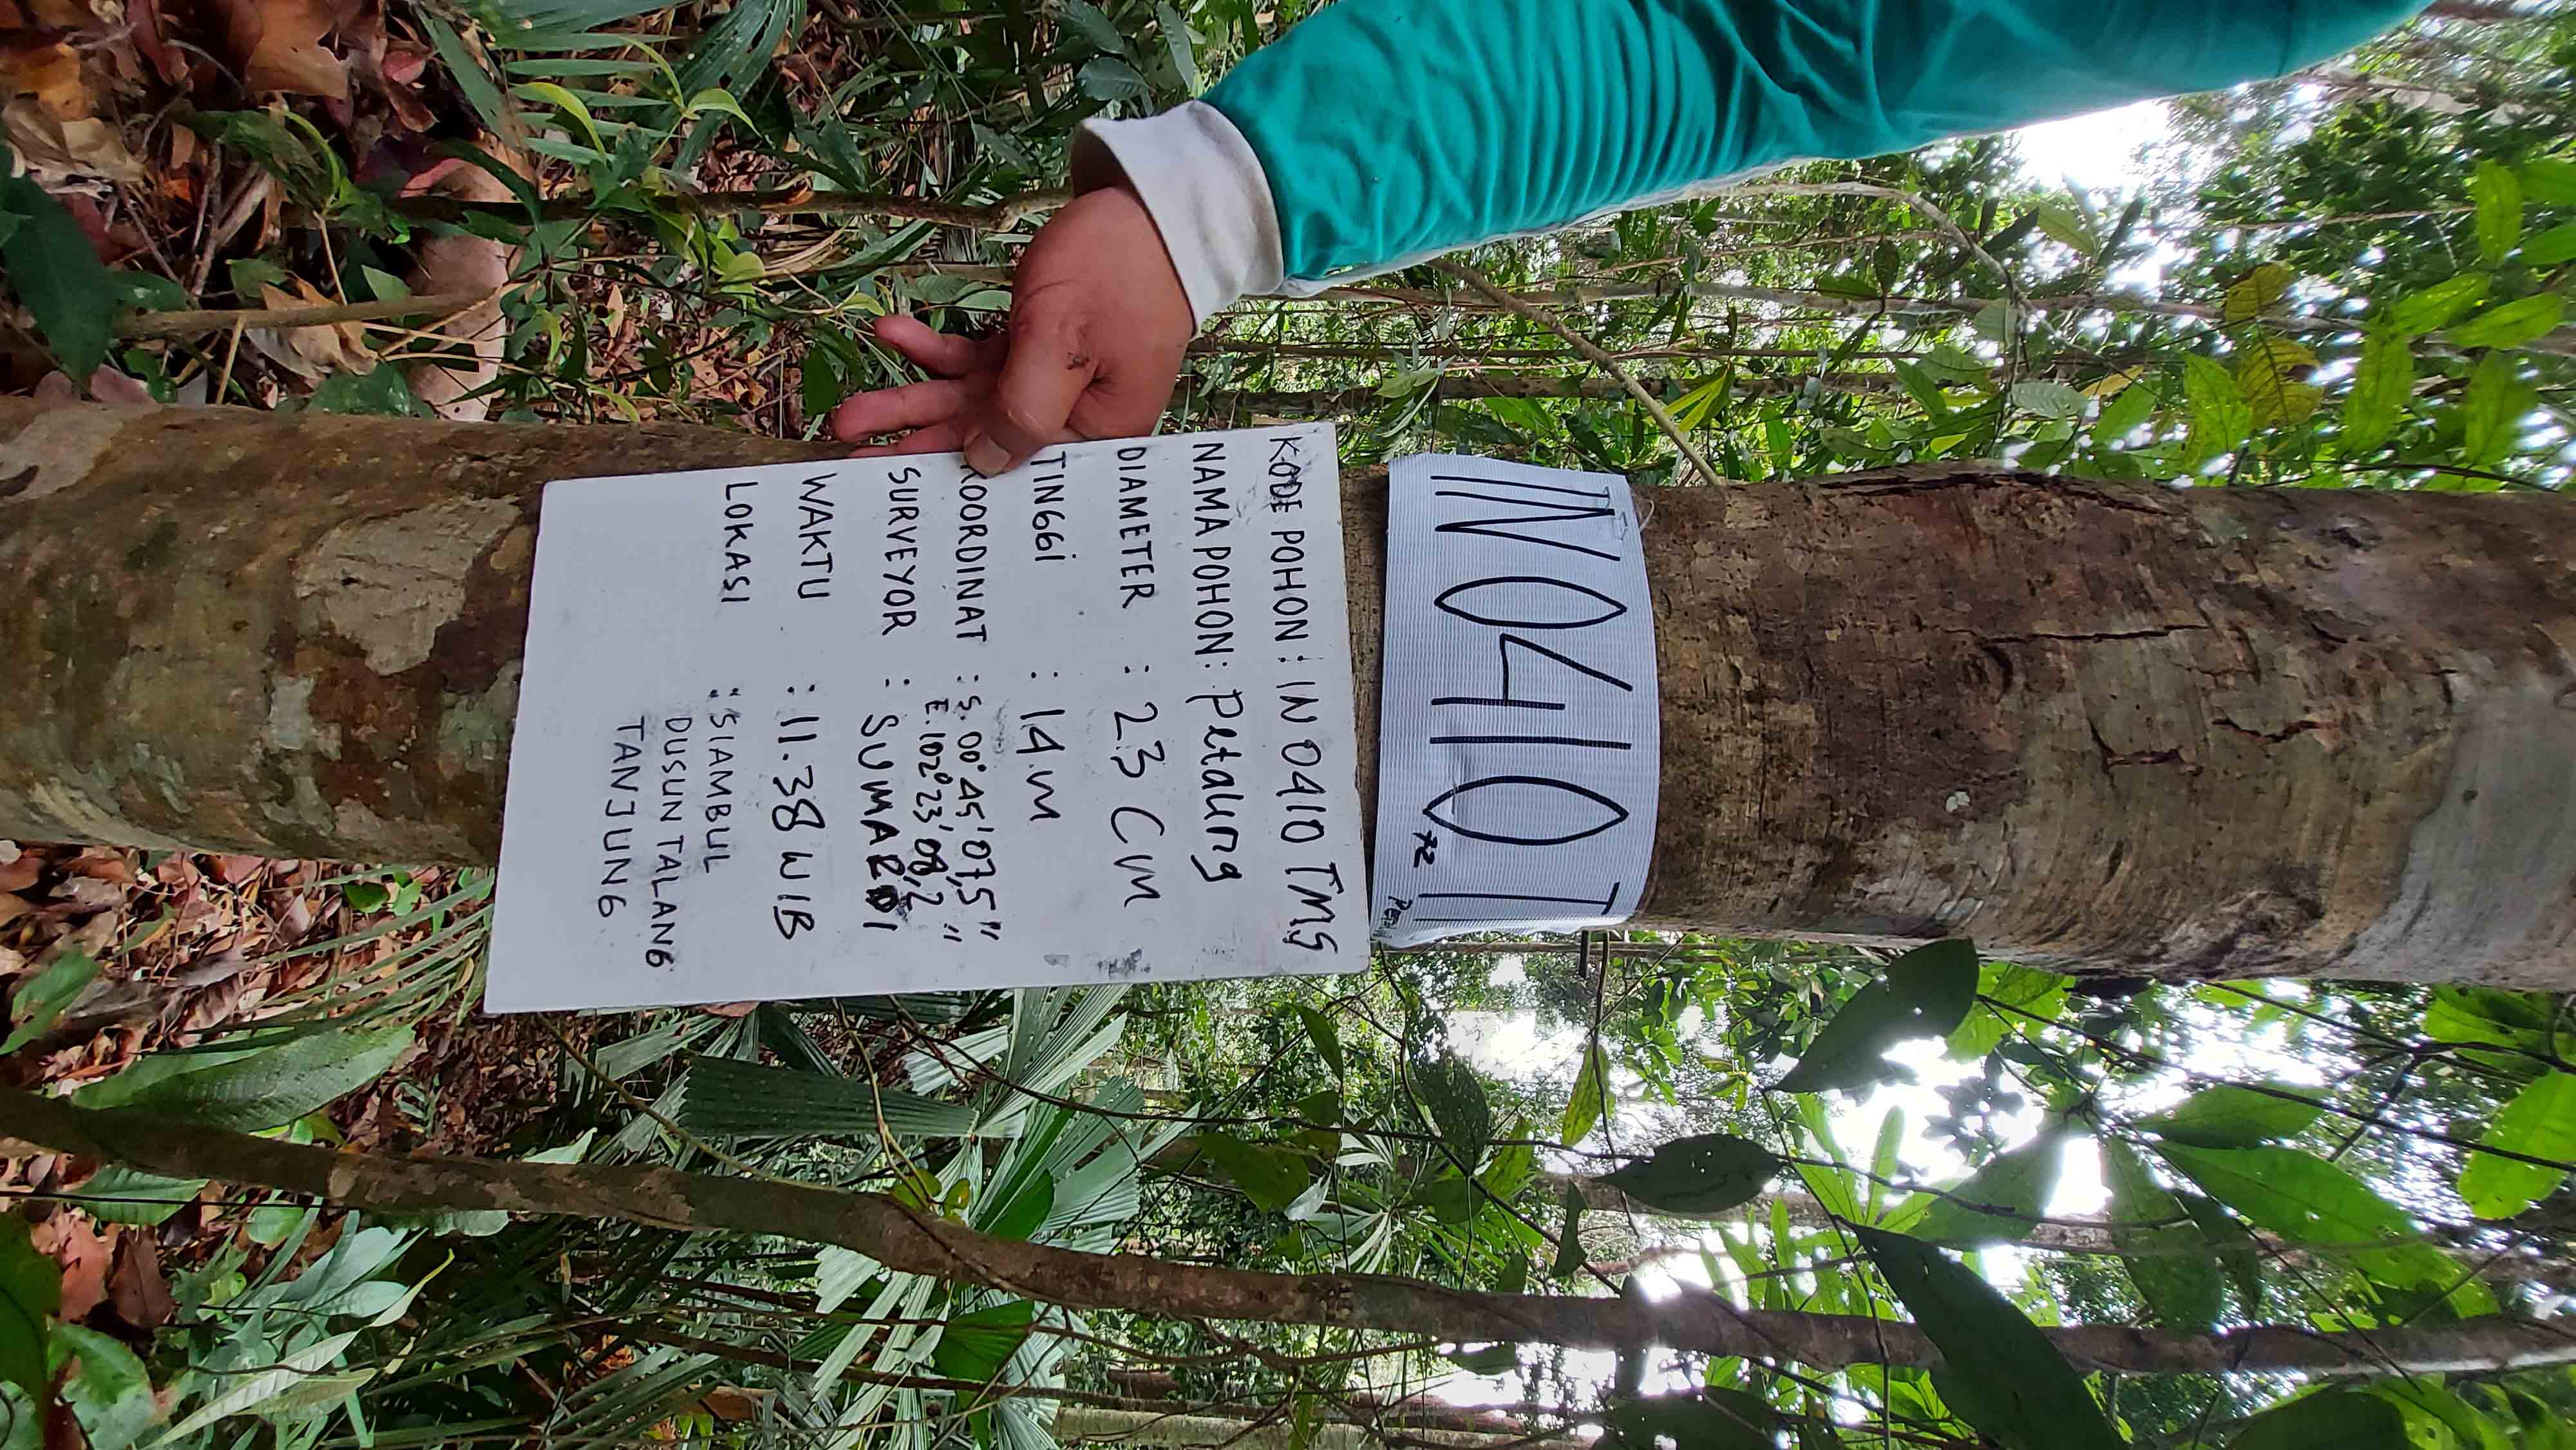 IN 0410 T
72
KODE POHON : IN 0410 TMS
NAMA POHON : Petaling
DIAMETER : 23 CM
TINGGI : 14 M
KOORDINAT : S. 00° 45' 07,5"
E. 102° 23' 08,2"
SURVEYOR : SUMARDI
WAKTU : 11.38 WIB
LOKASI : SIAMBUL
DUSUN TALANG
TANJUNG